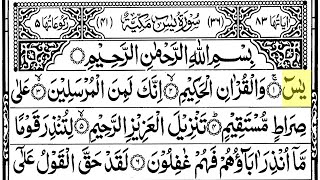 اٰیاتها ٨٣ (٣٦) سُوْرَةُ یٰسٓ مَكِّیَّةٌ (٤١) رُكُوْعَاتُهَا ٥
بِسْمِ اللّٰهِ الرَّحْمٰنِ الرَّحِیْمِ
یٰسٓ ۚ﴿١﴾ وَالْقُرْاٰنِ الْحَكِیْمِ ۙ﴿٢﴾ اِنَّكَ لَمِنَ الْمُرْسَلِیْنَ ۙ﴿٣﴾ عَلٰی
صِرَاطٍ مُّسْتَقِیْمٍ ؕ﴿٤﴾ تَنْزِیْلَ الْعَزِیْزِ الرَّحِیْمِ ۙ﴿٥﴾ لِتُنْذِرَ قَوْمًا
مَّاۤ اُنْذِرَ اٰبَآؤُهُمْ فَهُمْ غٰفِلُوْنَ ﴿٦﴾ لَقَدْ حَقَّ الْقَوْلُ عَلٰۤی